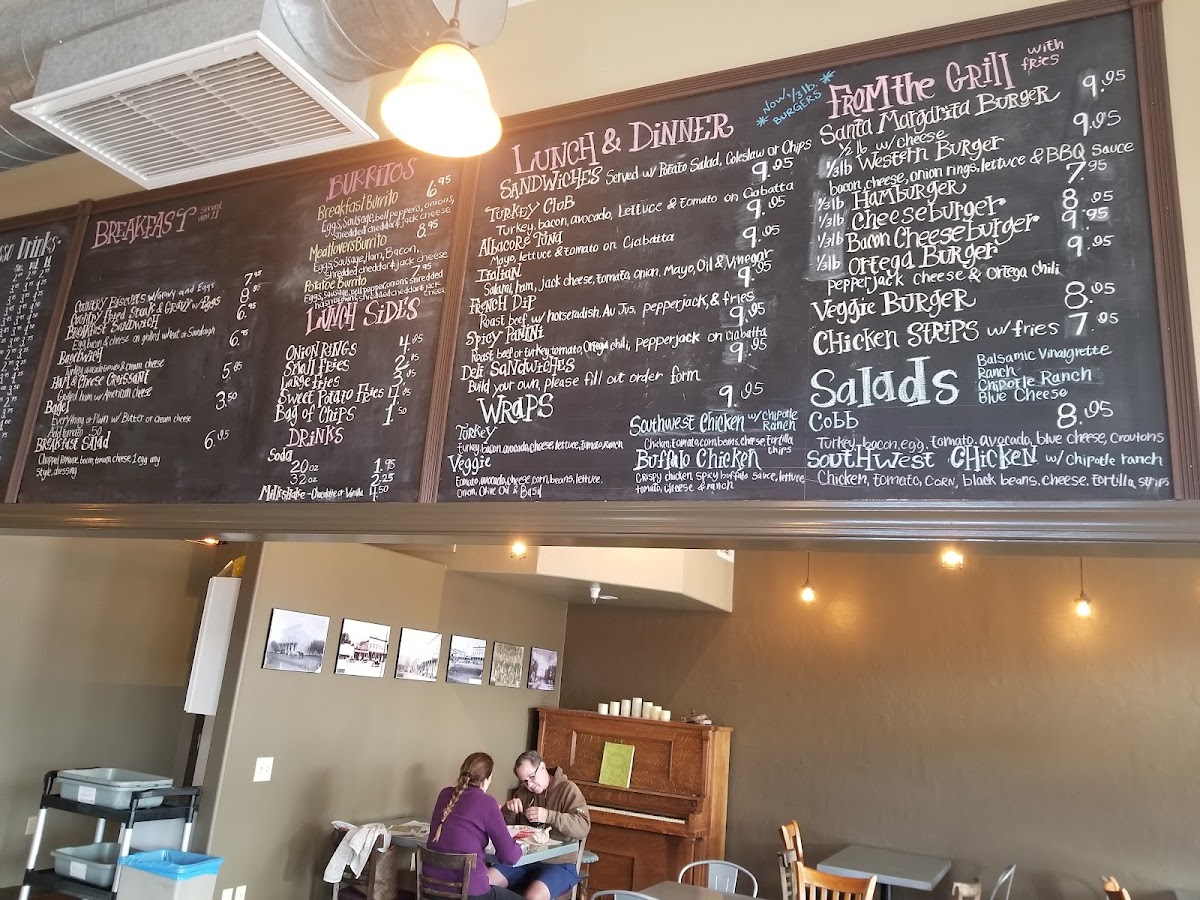 Drinks
BREAKFAST Served until 11
COUNTRY BISCUITS w/GRAVY and EGGS 7.95
COUNTRY FRIED STEAK & GRAVY w/ Eggs 8.95
BREAKFAST SANDWICH 6.95
Egg, bacon & cheese on grilled wheat or Sourdough
6.95
Turkey, avocado, tomato & cream cheese
HAM & CHEESE CROISSANT 5.95
Grilled ham w/ American cheese
Bagel 3.50
Everything or Plain w/ Butter or Cream cheese
Add tomato .50
BREAKFAST SALAD 6.95
Chopped Romaine, bacon, tomato, cheese, 1 egg any
Style, dressing
BURRITOS
Breakfast Burrito 6.95
Eggs, Sausage, bell peppers, onions,
shredded cheddar & jack cheese
Meatlovers Burrito 8.95
Eggs, Sausage, Ham, Bacon,
Shredded cheddar & jack cheese
Potatoe Burrito 7.95
Eggs, Sausage, bell pepper, onions, shredded
shredded cheddar & jack cheese
LUNCH SIDES
ONION RINGS 4.95
Small Fries 2.95
Large fries 3.95
Sweet Potato Fries 4.95
Bag of Chips 1.50
DRINKS
Soda
20 oz 1.95
32 oz 2.25
Milkshake - Chocolate or Vanilla 4.50
LUNCH & DINNER
SANDWICHES Served w/ Potato Salad, Coleslaw or Chips
TURKEY CLUB 9.95
Turkey, bacon, avocado, Lettuce & Tomato on Ciabatta
Albacore Tuna 9.95
Mayo, lettuce & tomato on Ciabatta
Italian 9.95
Salami, ham, jack cheese, tomato, onion, Mayo, Oil & Vinegar
FRENCH DIP 9.95
Roast beef w/ horseradish, Au Jus, pepperjack, & fries
Spicy PANINI 9.95
Roast beef or turkey, tomato, Ortega chili, pepperjack on Ciabatta
Deli SANDWICHES 9.95
Build your own, please fill out order form
WRAPS 9.95
Turkey
Turkey, bacon, avocado, cheese, lettuce, tomato, ranch
Veggie
Tomato, avocado, cheese, corn, beans, lettuce,
Onion, Olive Oil & Basil
Southwest Chicken w/ Chipotle Ranch
Chicken, tomato, corn, beans, cheese, tortilla chips
Buffalo Chicken
Crispy chicken, spicy buffalo sauce, lettuce,
tomato, cheese & ranch
*Now 1/3 lb. BURGERS*
FROM the GRILL with fries
Santa Margarita BURGER 9.95
1/2 lb w/ cheese
1/3lb Western Burger 9.95
bacon, cheese, onion rings, lettuce & BBQ Sauce
1/3lb Hamburger 7.95
1/3lb Cheeseburger 8.95
1/3lb Bacon Cheeseburger 9.95
1/3lb ORTEGA BURGER 9.95
pepper jack cheese & ortega chili
Veggie BURGER 8.95
Chicken STRIPS w/ fries 7.95
Salads
Balsamic Vinaigrette
Ranch
Chipotle Ranch
Blue Cheese
Cobb 8.95
Turkey, bacon, egg, tomato, avocado, blue cheese, Croutons
SOUTHWEST CHICKEN w/ Chipotle ranch
Chicken, tomato, CORN, black beans, cheese, tortilla strips